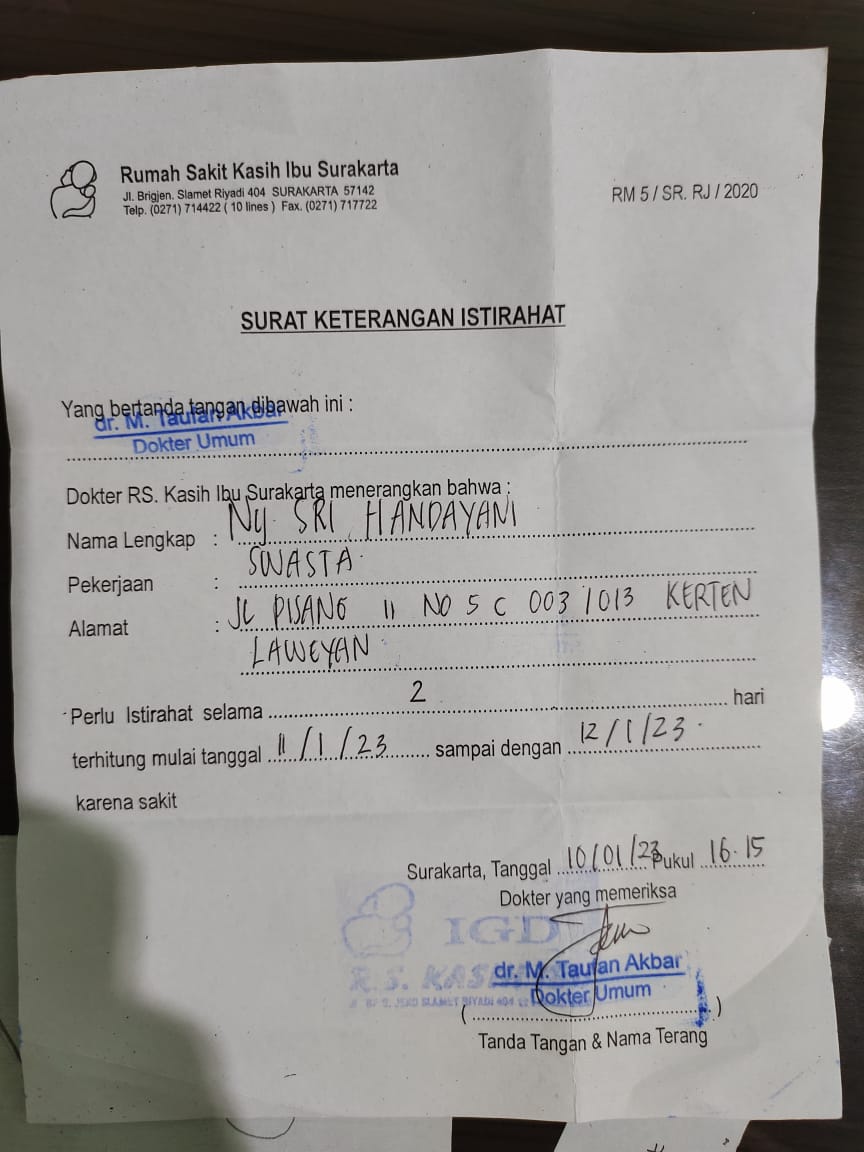 Rumah Sakit Kasih Ibu Surakarta
Jl. Brigjen. Slamet Riyadi 404 SURAKARTA 57142
Telp. (0271) 714422 ( 10 lines ) Fax. (0271) 717722
RM 5 / SR. RJ / 2020
SURAT KETERANGAN ISTIRAHAT
Yang bertanda tangan dibawah ini :
dr. M. Taufan Akbar
Dokter Umum
Dokter RS. Kasih Ibu Surakarta menerangkan bahwa :
Nama Lengkap : Ny. SRI HANDAYANI
Pekerjaan : SWASTA
Alamat : JL PISANG II NO 5 C 003 / 013 KERTEN
LAWEYAN
Perlu Istirahat selama 2 hari
terhitung mulai tanggal 11/1/23 sampai dengan 12/1/23
karena sakit
Surakarta, Tanggal 10/01/23 Pukul 16.15
Dokter yang memeriksa
IGD
R.S.
dr. M. Taufan Akbar
Dokter Umum
(                    )
Tanda Tangan & Nama Terang